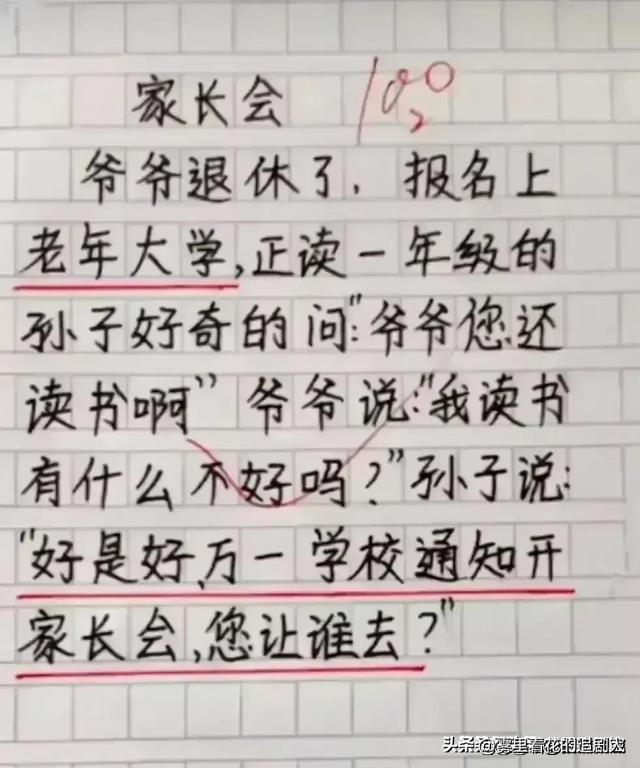 家长会 100
爷爷退休了，报名上
老年大学,正读一年级的
孙子好奇的问:"爷爷您还
读书啊" 爷爷说:"我读书
有什么不好吗?"孙子说:
"好是好,万一学校通知开
家长会,您让谁去?"